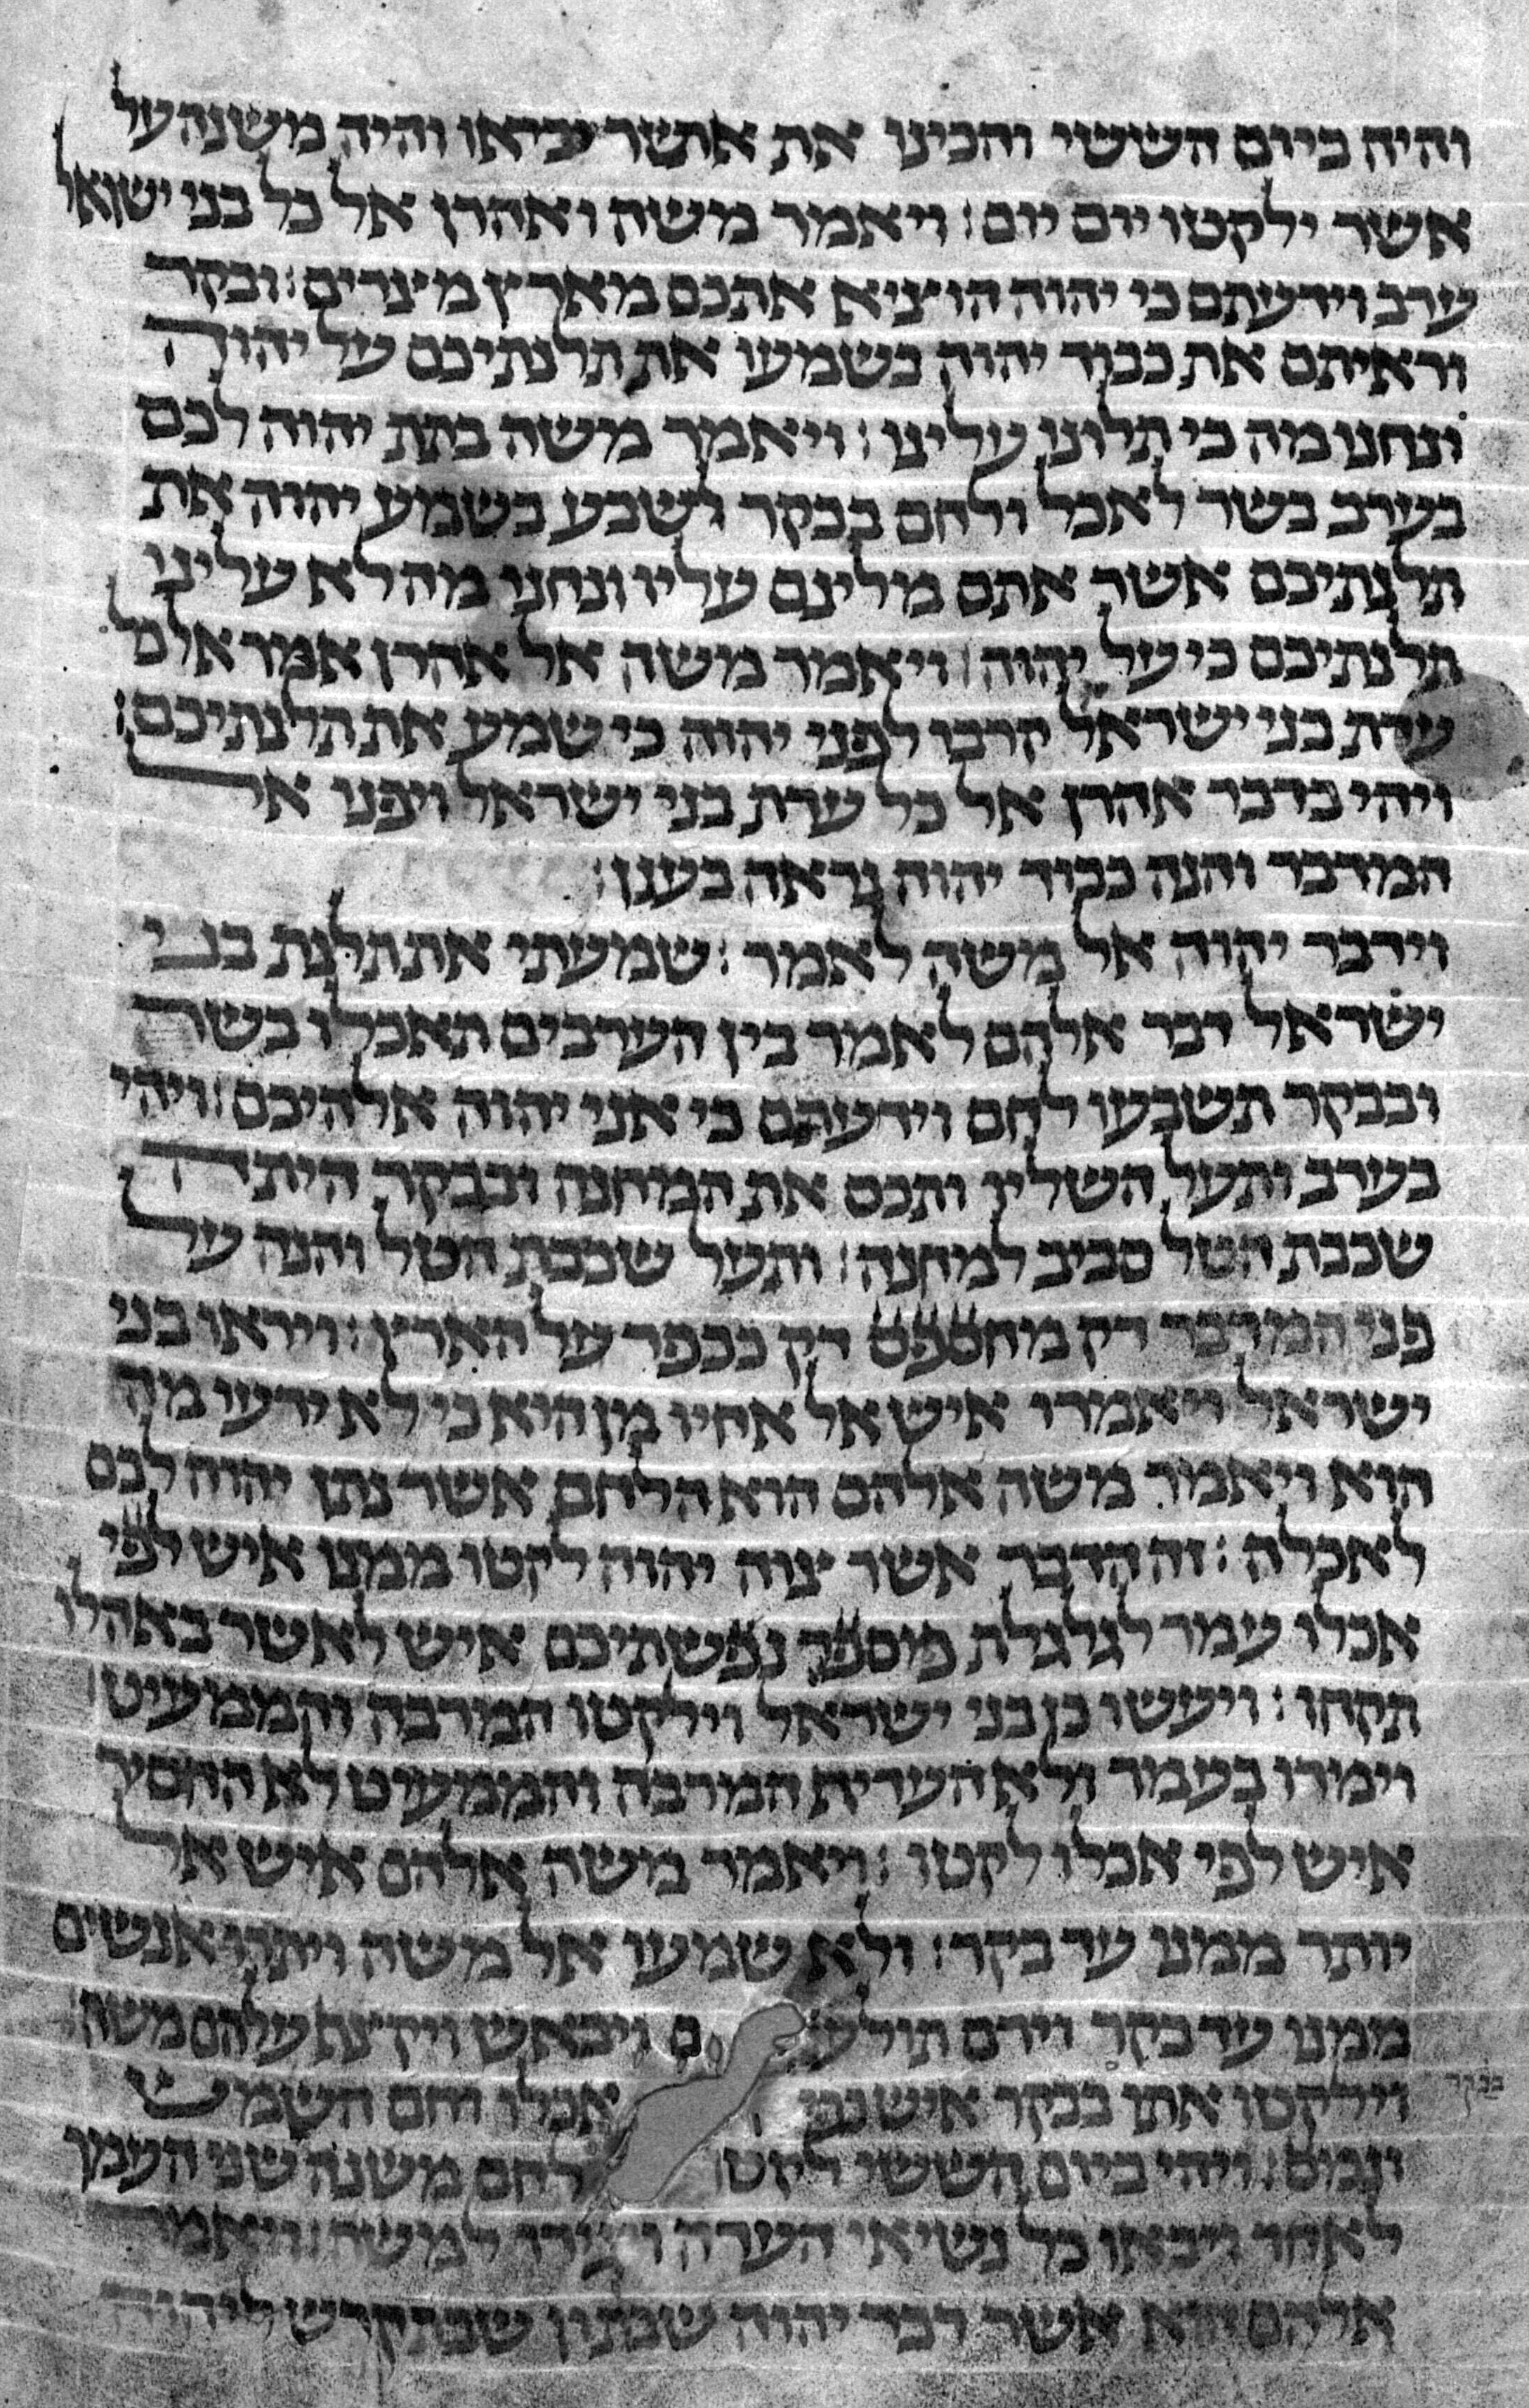 והיה ביום הששי והכינו את אתשר יביאו והיה משנה על
אשר ילקטו יום יום : ויאמר משה ואהרן אל כל בני ישראל
ערב וידעתם כי יהוה הוציא אתכם מארץ מצרים : ובקר
וראיתם את כבוד יהוה בשמעו את תלנתיכם על יהוה
ונחנו מה כי תלונו עלינו : ויאמר משה בתת יהוה לכם
בערב בשר לאכל ולחם בבקר לשבע בשמע יהוה את
תלנתיכם אשר אתם מלינם עליו ונחנו מה לא עלינו
תלנתיכם כי על יהוה : ויאמר משה אל אהרן אמר אל כל
עדת בני ישראל קרבו לפני יהוה כי שמע את תלנתיכם :
ויהי כדבר אהרן אל כל עדת בני ישראל ויפנו אל
המדבר והנה כבוד יהוה נראה בענן :
וידבר יהוה אל משה לאמר : שמעתי את תלונת בני
ישראל דבר אלהם לאמר בין הערבים תאכלו בשר
ובבקר תשבעו לחם וידעתם כי אני יהוה אלהיכם : ויהי
בערב ותעל השליו ותכס את המחנה ובבקר היתה
שכבת הטל סביב למחנה : ותעל שכבת הטל והנה על
פני המדבר דק מחספס דק ככפר על הארץ : ויראו בני
ישראל ויאמרו איש אל אחיו מן הוא כי לא ידעו מה
הוא ויאמר משה אלהם הוא הלחם אשר נתן יהוה לכם
לאכלה : זה הדבר אשר צוה יהוה לקטו ממנו איש לפי
אכלו עמר לגלגלת מספר נפשתיכם איש לאשר באהלו
תקחו : ויעשו כן בני ישראל וילקטו המרבה והממעיט
וימדו בעמר ולא העדיף המרבה והממעיט לא החסיר
איש לפי אכלו לקטו : ויאמר משה אלהם איש אל
יותר ממנו עד בקר : ולא שמעו אל משה ויתרו אנשים
ממנו עד בקר וירם תולע ם ויבאש ויקצף עלהם משה :
וילקטו אתו בבקר איש כפי אכלו וחם השמש
בבקר
ונמס : ויהי ביום הששי לקטו לחם משנה שני העמר
לאחד ויבאו כל נשיאי העדה ויגידו למשה : ויאמר
אלהם הוא אשר דבר יהוה שבתון שבת קדש ליהוה